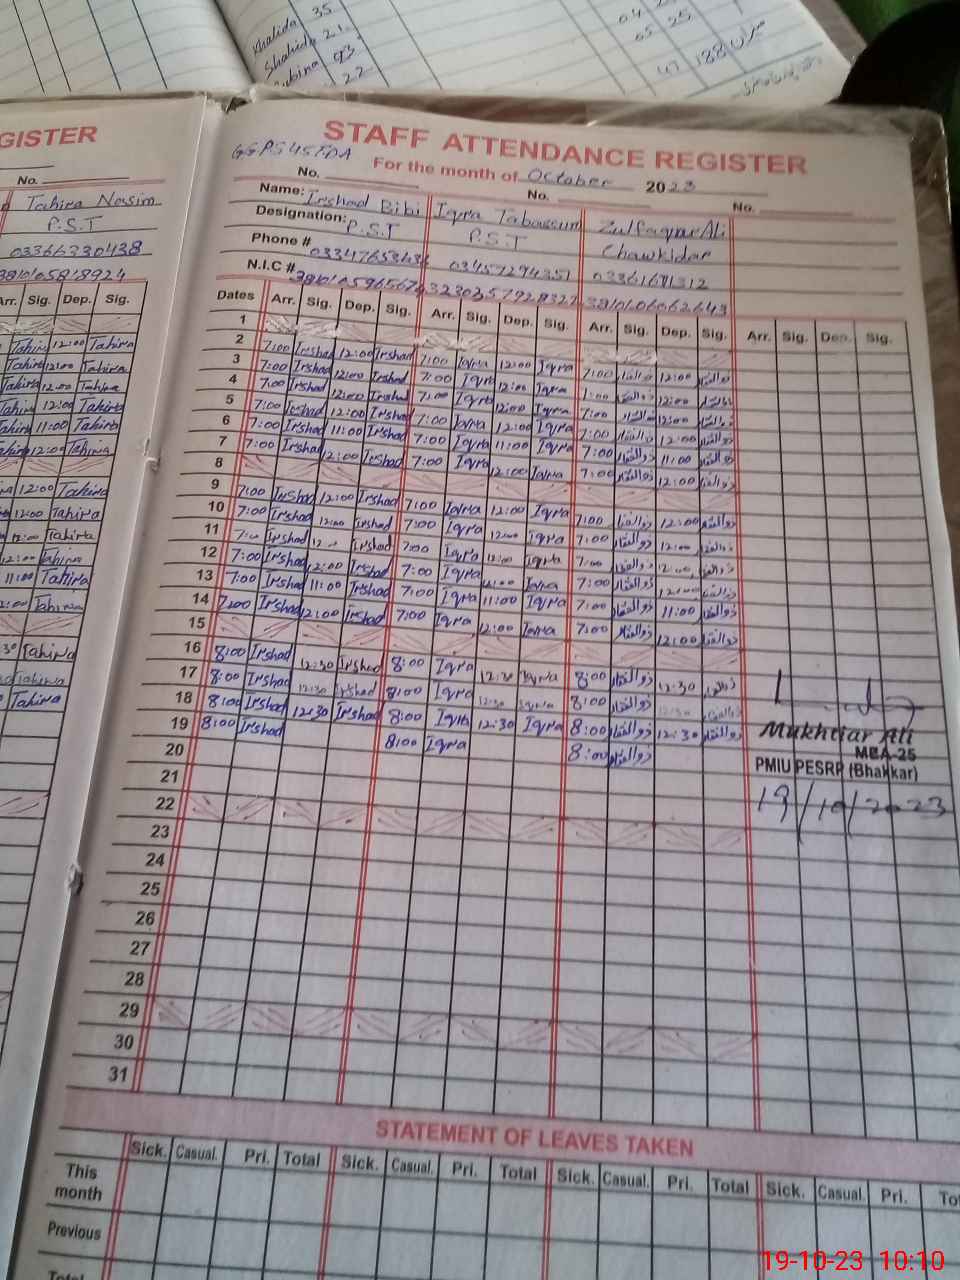 Khalida 35
Shahida 21
93
22
04
05 25
47 188
GISTER
No.
Tahira Nasim
P.S.T
03366330438
Arr. Sig. Dep. Sig.
Tahira 12:00 Tahira
Tahira 12:00 Tahira
Tahira 12:00 Tahira
Tahira 12:00 Tahira
Tahira 11:00 Tahira
Tahira 12:00 Tahira
12:00 Tahira
12:00 Tahira
12:00 Tahira
12:00 Tahira
11:00 Tahira
Tahira
Tahira
Tahira
Tahira
STAFF ATTENDANCE REGISTER
For the month of October 2023
No. No. No.
Name: Irshad Bibi Iqra Tabassum Zulfaqar Ali
Designation: P.S.T P.S.T Chawkidar
Phone # 03457294351 03361671312
N.I.C #
Dates Arr. Sig. Dep. Sig. Arr. Sig. Dep. Sig. Arr. Sig. Dep. Sig. Arr. Sig. Dep. Sig.
1
2 7:00 Irshad 12:00 Irshad 7:00 Iqra 12:00 Iqra 7:00 ذوالفقار 12:00 ذوالفقار
3 7:00 Irshad 12:00 Irshad 7:00 Iqra 12:00 Iqra 7:00 ذوالفقار 12:00 ذوالفقار
4 7:00 Irshad 12:00 Irshad 7:00 Iqra 12:00 Iqra 7:00 ذوالفقار 12:00 ذوالفقار
5 7:00 Irshad 12:00 Irshad 7:00 Iqra 12:00 Iqra 7:00 ذوالفقار 12:00 ذوالفقار
6 7:00 Irshad 11:00 Irshad 7:00 Iqra 11:00 Iqra 7:00 ذوالفقار 11:00 ذوالفقار
7 7:00 Irshad 12:00 Irshad 7:00 Iqra 12:00 Iqra 7:00 ذوالفقار 12:00 ذوالفقار
8
9 7:00 Irshad 12:00 Irshad 7:00 Iqra 12:00 Iqra 7:00 ذوالفقار 12:00 ذوالفقار
10 7:00 Irshad 12:00 Irshad 7:00 Iqra 12:00 Iqra 7:00 ذوالفقار 12:00 ذوالفقار
11 7:00 Irshad 12:00 Irshad 7:00 Iqra 12:00 Iqra 7:00 ذوالفقار 12:00 ذوالفقار
12 7:00 Irshad 12:00 Irshad 7:00 Iqra 12:00 Iqra 7:00 ذوالفقار 12:00 ذوالفقار
13 7:00 Irshad 11:00 Irshad 7:00 Iqra 11:00 Iqra 7:00 ذوالفقار 11:00 ذوالفقار
14 7:00 Irshad 12:00 Irshad 7:00 Iqra 12:00 Iqra 7:00 ذوالفقار 12:00 ذوالفقار
15
16 8:00 Irshad 12:30 Irshad 8:00 Iqra 12:30 Iqra 8:00 ذوالفقار 12:30 ذوالفقار
17 8:00 Irshad 12:30 Irshad 8:00 Iqra 12:30 Iqra 8:00 ذوالفقار 12:30 ذوالفقار
18 8:00 Irshad 12:30 Irshad 8:00 Iqra 12:30 Iqra 8:00 ذوالفقار 12:30 ذوالفقار
19 8:00 Irshad 8:00 Iqra 8:00 ذوالفقار
20
21
22
23
24
25
26
27
28
29
30
31
Mukhtiar Ali
MEA-25
PMIU PESRP (Bhakkar)
19/10/2023
STATEMENT OF LEAVES TAKEN
Sick. Casual. Pri. Total Sick. Casual. Pri. Total Sick. Casual. Pri. Total Sick. Casual. Pri.
This month
Previous
Total
19-10-23 10:10